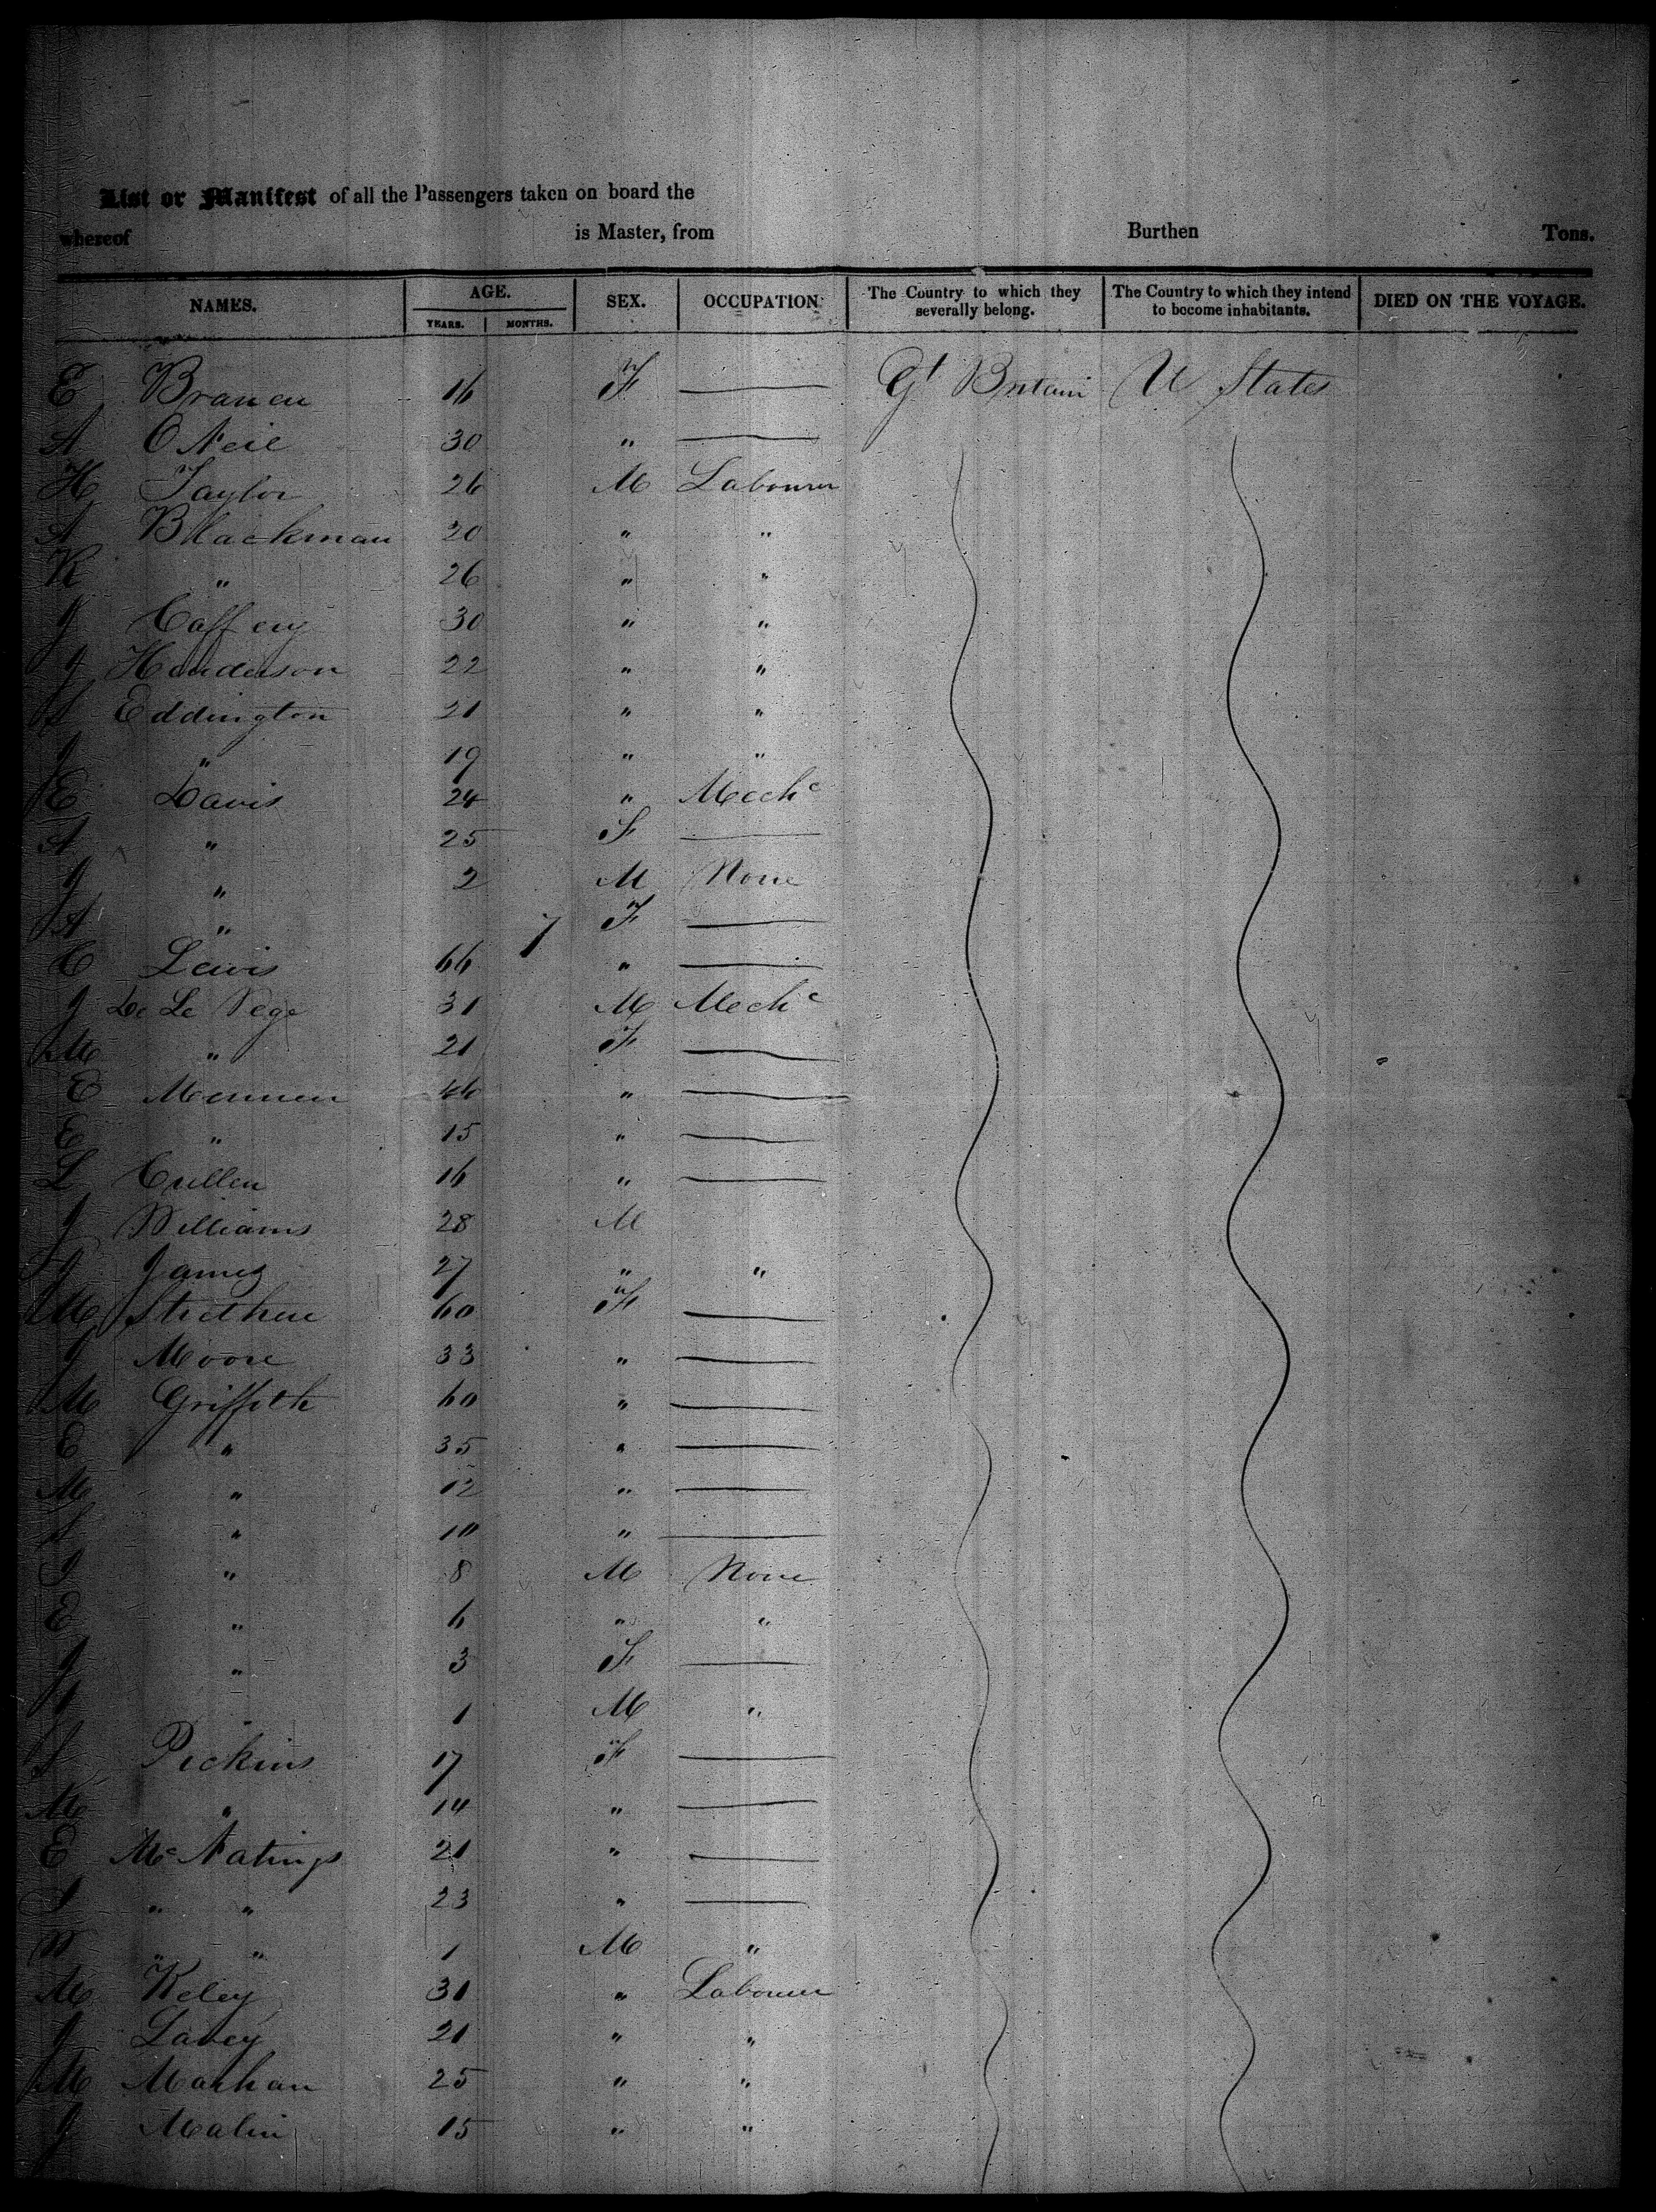 List or Manifest of all the Passengers taken on board the
whereof is Master, from Burthen Tons.
NAMES. AGE. SEX. OCCUPATION. The Country to which they severally belong. The Country to which they intend to become inhabitants. DIED ON THE VOYAGE.
YEARS. MONTHS.
E 16 F — Gt Britain U States
A O Neil 30 " —
H Taylor 26 M Labourer
A Blackman 20 " "
K " 26 " "
J Caffery 30 " "
J Henderson 22 " "
S Eddington 21 " "
J " 19 " "
E Davis 24 " Mechc
A " 25 F —
J " 2 M None
A " 7 F —
C Lewis 66 " —
J De Le Vege 31 M Mechc
M " 21 F —
E 46 " —
E " 15 " —
L Cullen 16 " —
J Williams 28 M
J James 27 " "
M 60 F —
J Moore 33 " —
M Griffith 60 " —
E " 35 " —
M " 12 " —
" 10 " —
J " 8 M None
E " 6 " "
J " 3 F —
1 M "
S Pickins 17 F —
M " 14 " —
E Mc Natings 21 " —
S " " 23 " —
W " " 1 M "
M Keley 31 " Labourer
J Lavey 21 " "
M 25 " "
J Malin 15 " "